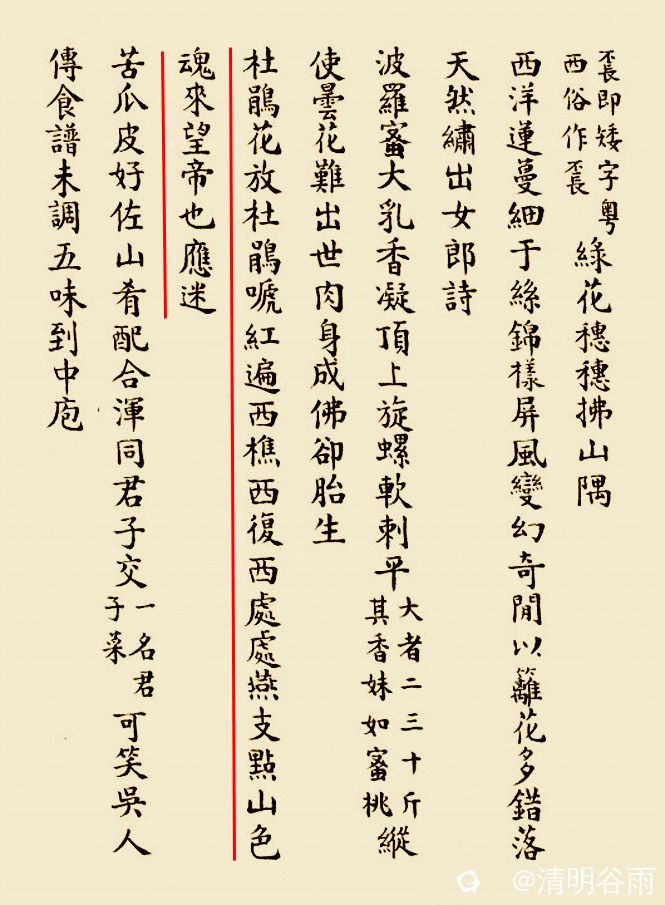 即矮字粵西俗作綠花穗穗拂山隅
西洋蓮蔓細于絲錦樣屏風變幻奇閒以籬花多錯落
天然繡出女郎詩
波羅蜜大乳香凝頂上旋螺軟刺平大者二三十斤其香妹如蜜桃縱
使曇花難出世肉身成佛卻胎生
杜鵑花放杜鵑嗁紅遍西樵西復西處處燕支點山色
魂來望帝也應迷
苦瓜皮好佐山肴配合渾同君子交一名君子菜可笑吳人
傳食譜未調五味到中庖
@清明谷雨